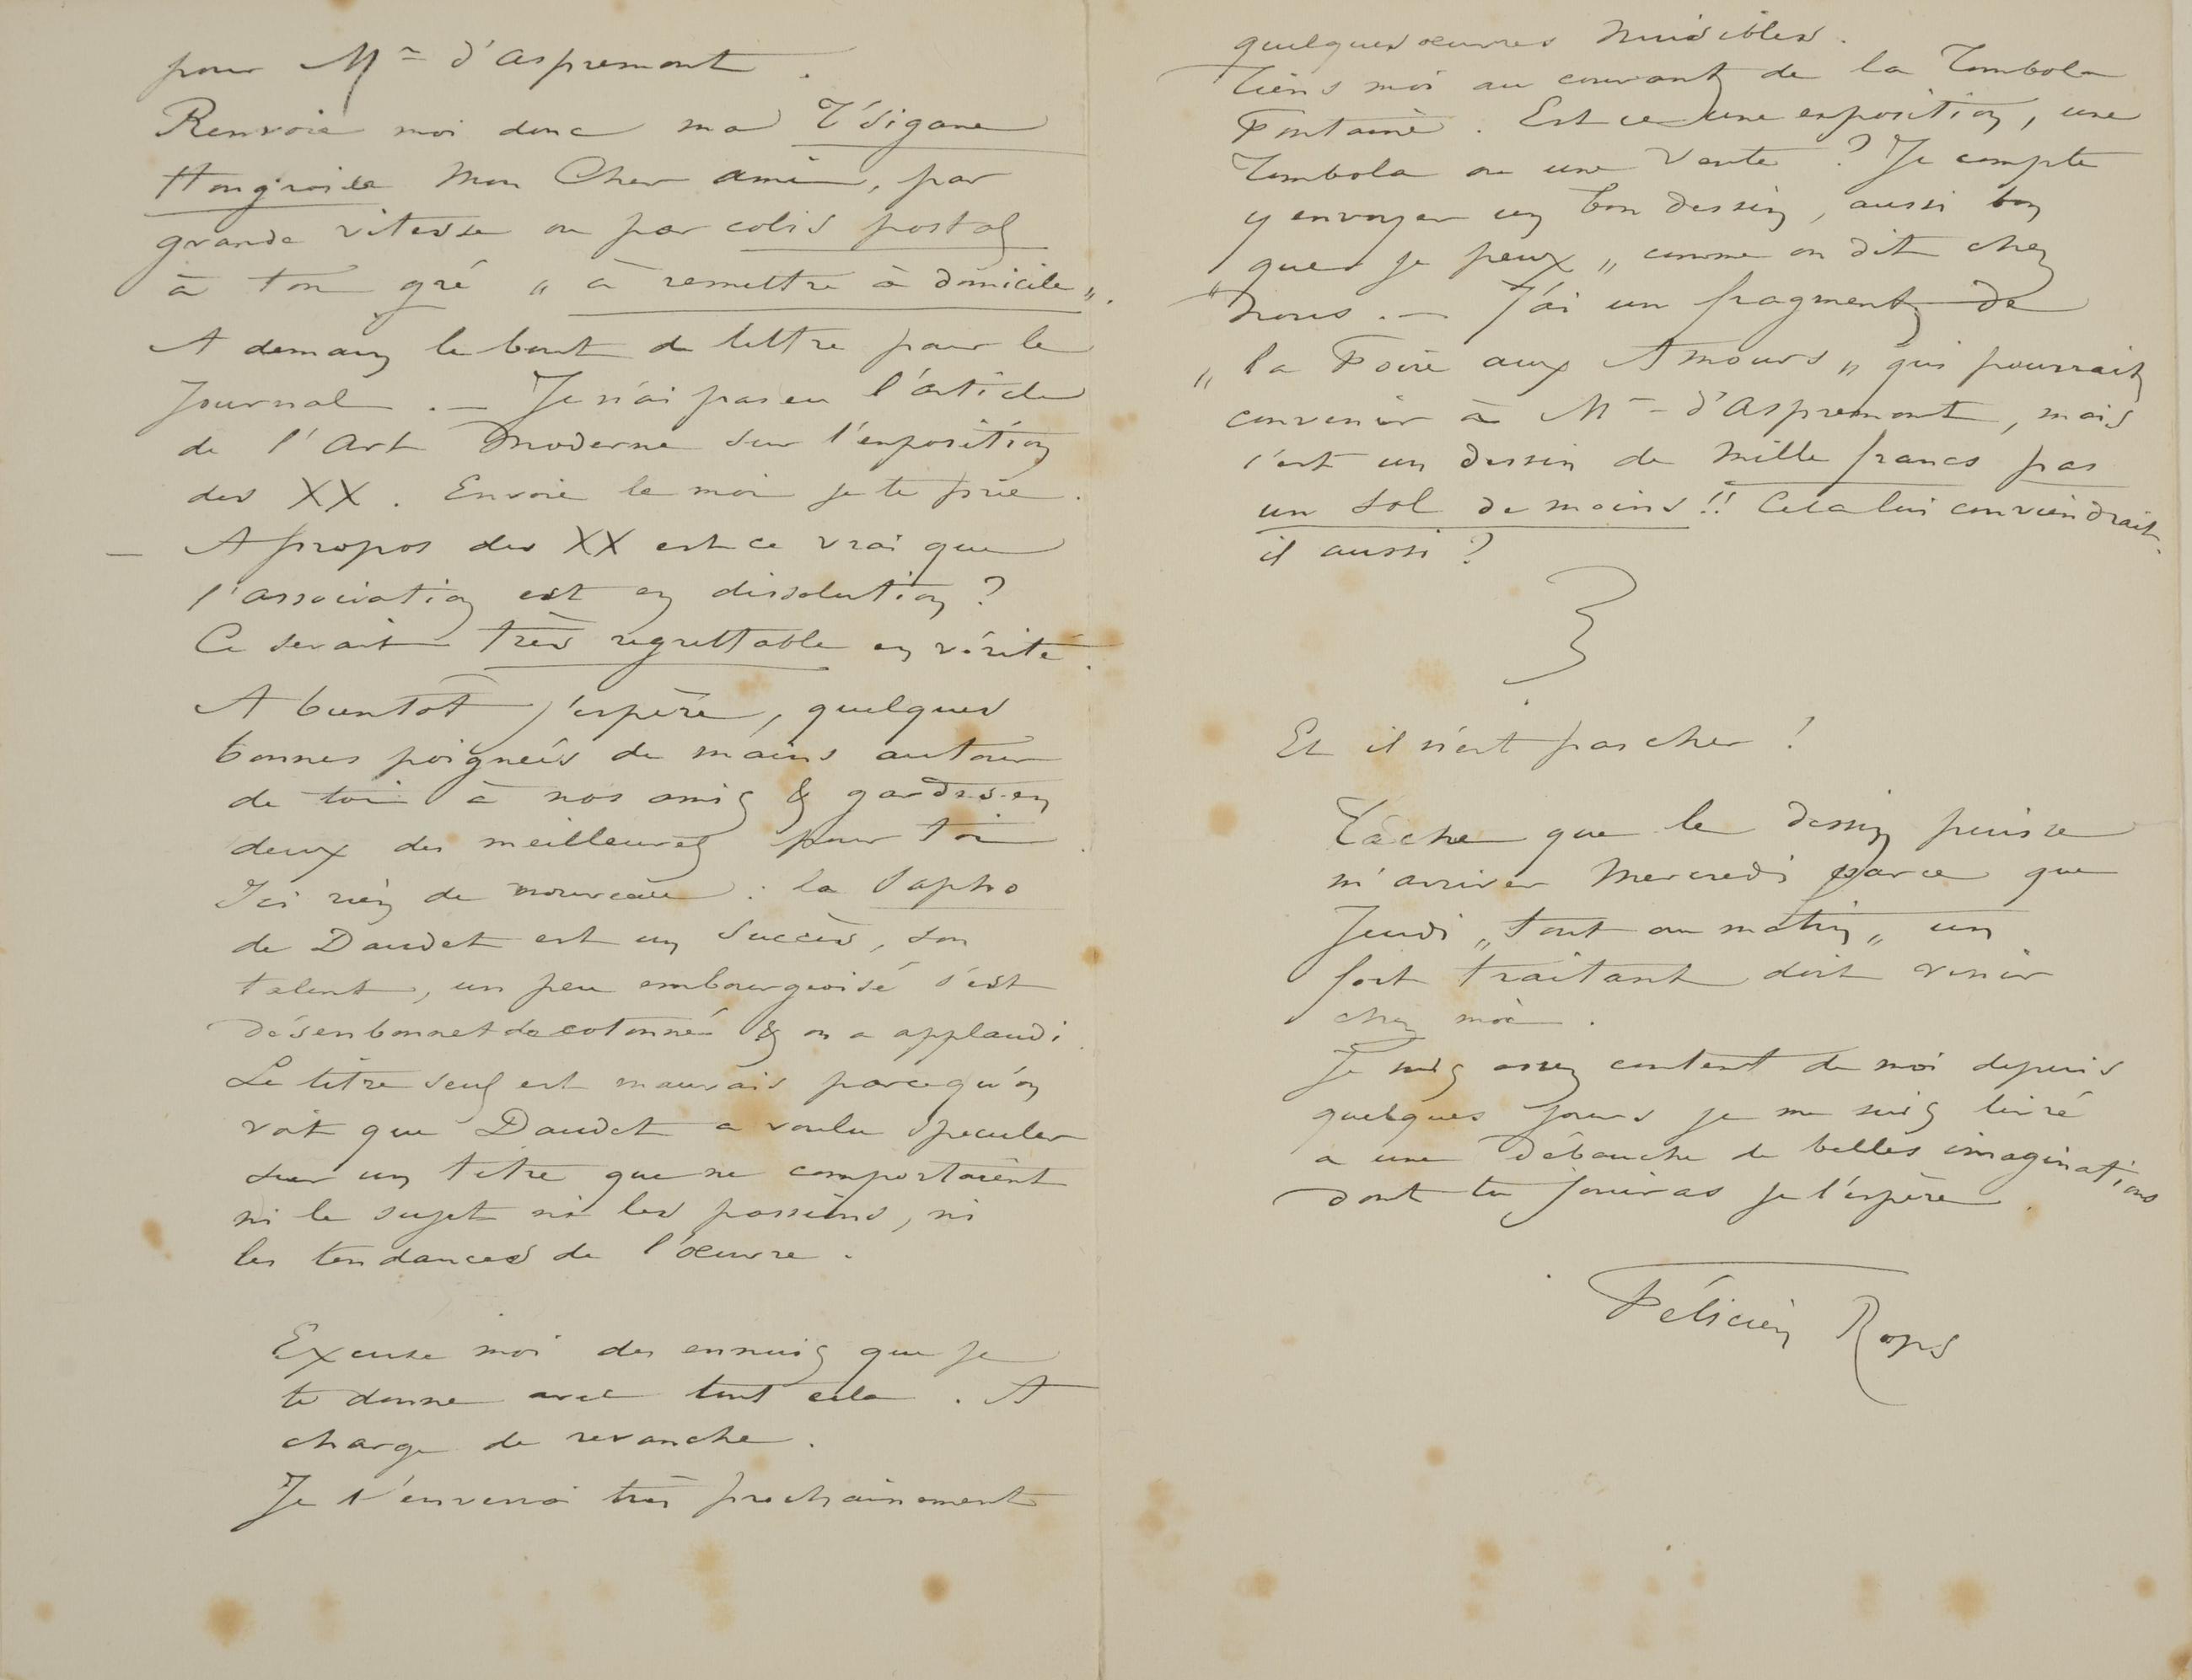 pour Mr d'Aspremont.
Renvoie moi donc ma Tsigane
Hongroise Mon Cher ami, par
grande vitesse ou par colis postal
à ton gré „ à remettre à domicile „.
A demain le bout de lettre pour le
Journal. — Je n'ai pas eu l'article
de l'Art Moderne sur l'exposition
des XX. Envoie le moi je te prie.
— A propos des XX est ce vrai que
l'association est en dissolution ?
Ce serait très regrettable en vérité.
A bientôt j'espère, quelques
bonnes poignées de mains autour
de toi à nos amis & gardes-en
deux des meilleures pour toi
Ici rien de nouveau : la Sapho
de Daudet est un succès, son
talent, un peu embourgeoisé s'est
désenbonnetdecotonné & on a applaudi.
Le titre seul est mauvais parcequ'on
voit que Daudet a voulu spéculer
sur un titre que ne comportaient
ni le sujet ni les passions, ni
les tendances de l'œuvre.
Excuse moi des ennuis que je
te donne avec tout cela. A
charge de revanche.
Je t'enverrai très prochainement
quelques œuvres nuisibles.
Tiens moi au courant de la Tombola
Fontaine. Est ce une exposition, une
Tombola ou une vente ? Je compte
y envoyer un bon dessin, aussi bon
que je peux „ comme on dit chez
„ nous. — J'ai un fragment de
„ la Foire aux Amours „ qui pourrait
convenir à Mr d'Aspremont, mais
c'est un dessin de mille francs pas
un sol de moins !! Cela lui conviendrait-
il aussi ?
Et il n'est pas cher !
Tâche que le dessin puisse
m'arriver Mercredi parce que
Jeudi „ tout au matin „ un
fort traitant doit venir
chez moi.
Je suis assez content de moi depuis
quelques jours je me suis livré
a une débauche de belles imaginations
dont tu jouiras je l'espère.
Félicien Rops